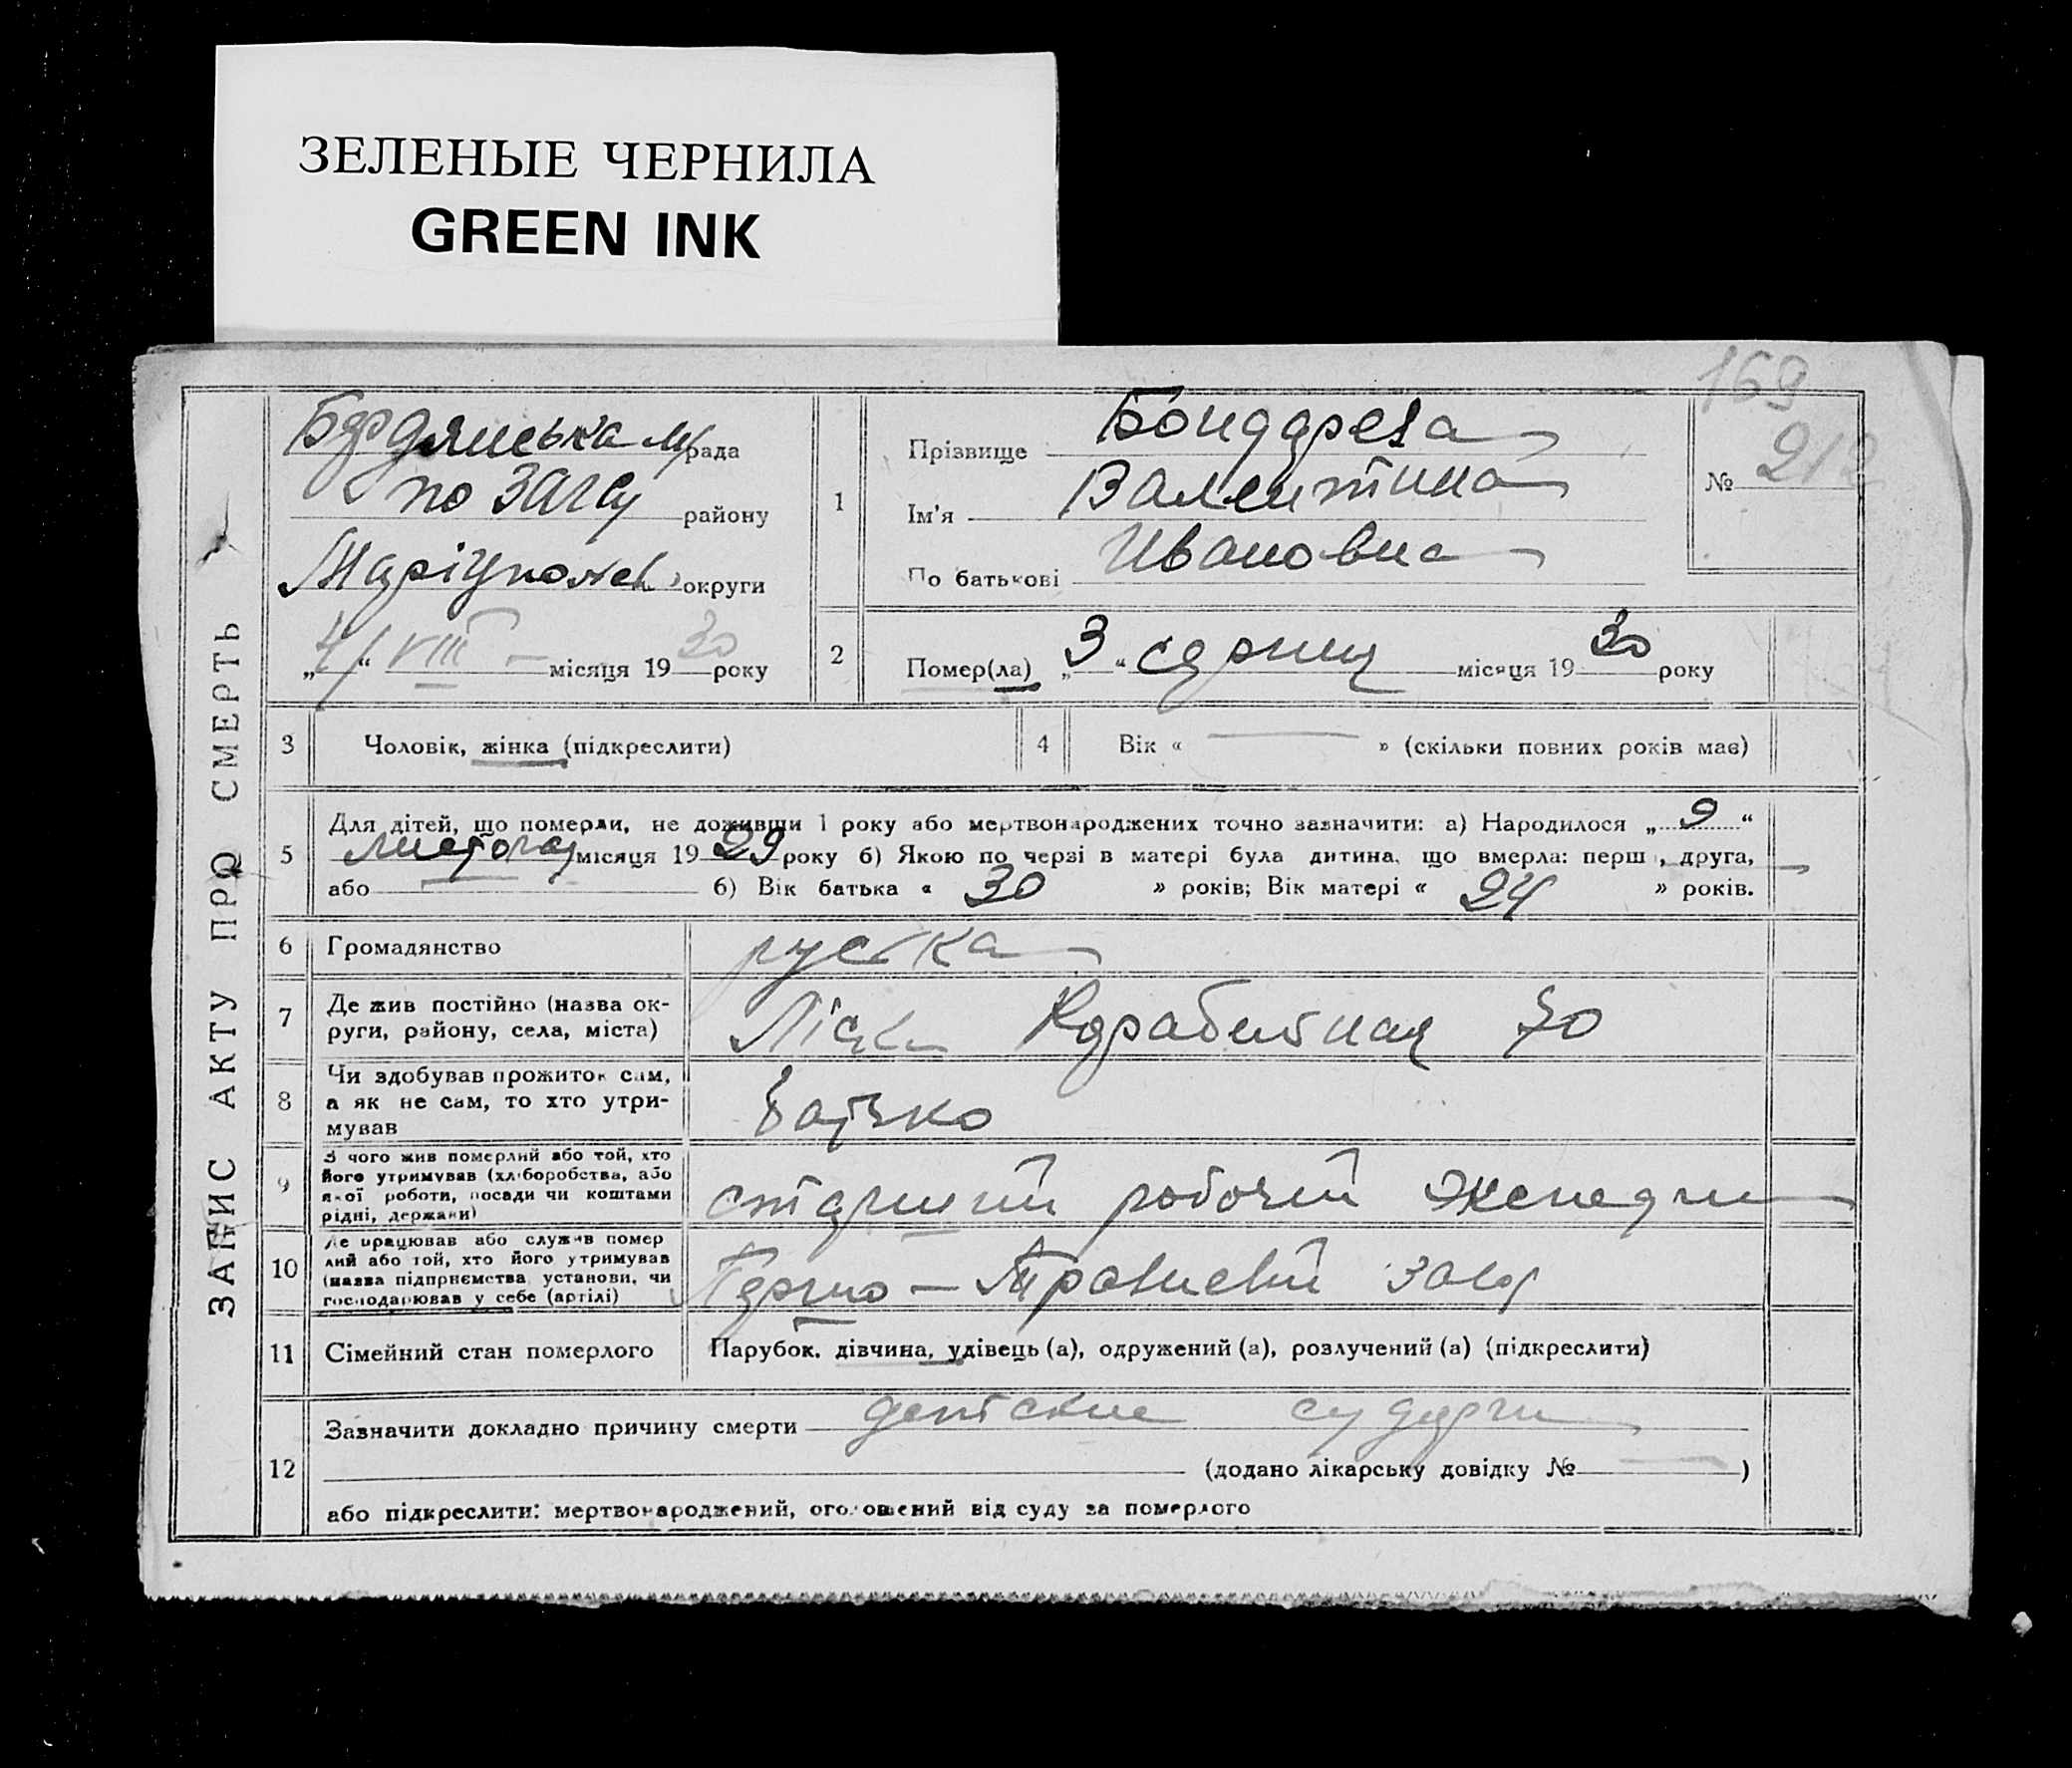 ЗЕЛЕНЫЕ ЧЕРНИЛА
GREEN INK
169
ЗАПИС АКТУ ПРО СМЕРТЬ
Бердянська м/рада
по ЗАГСу району
Маріупольс округи
„4“ VIII – місяця 1930 року
1
Прізвище Бондарева
Ім'я Валентина
По батькові Ивановна
№ 212
2
Помер(ла) „3“ серпня місяця 1930 року
3 Чоловік, жінка (підкреслити)
4 Вік « — » (скільки повних років мав)
5
Для дітей, що померли, не доживши 1 року або мертвонароджених точно зазначити: а) Народилося „9“
листопад місяця 1929 року б) Якою по черзі в матері була дитина, що вмерла: перша, друга,
або — б) Вік батька « 30 » років; Вік матері « 24 » років.
6 Громадянство руська
7 Де жив постійно (назва округи, району, села, міста) Ліски Корабельная 70
8 Чи здобував прожиток сам, а як не сам, то хто утримував батько
9 З чого жив померлий або той, хто його утримував (хліборобства, або якої роботи, посади чи коштами рідні, держави) старший робочий экспеди
10 Де працював або служив померлий або той, хто його утримував (назва підприємства, установи, чи господарював у себе (артілі) Першо – Травневий завод
11 Сімейний стан померлого Парубок, дівчина, удівець (а), одружений (а), розлучений (а) (підкреслити)
12
Зазначити докладно причину смерти детские судороги
(додано лікарську довідку № — )
або підкреслити: мертвонароджений, оголошений від суду за померлого